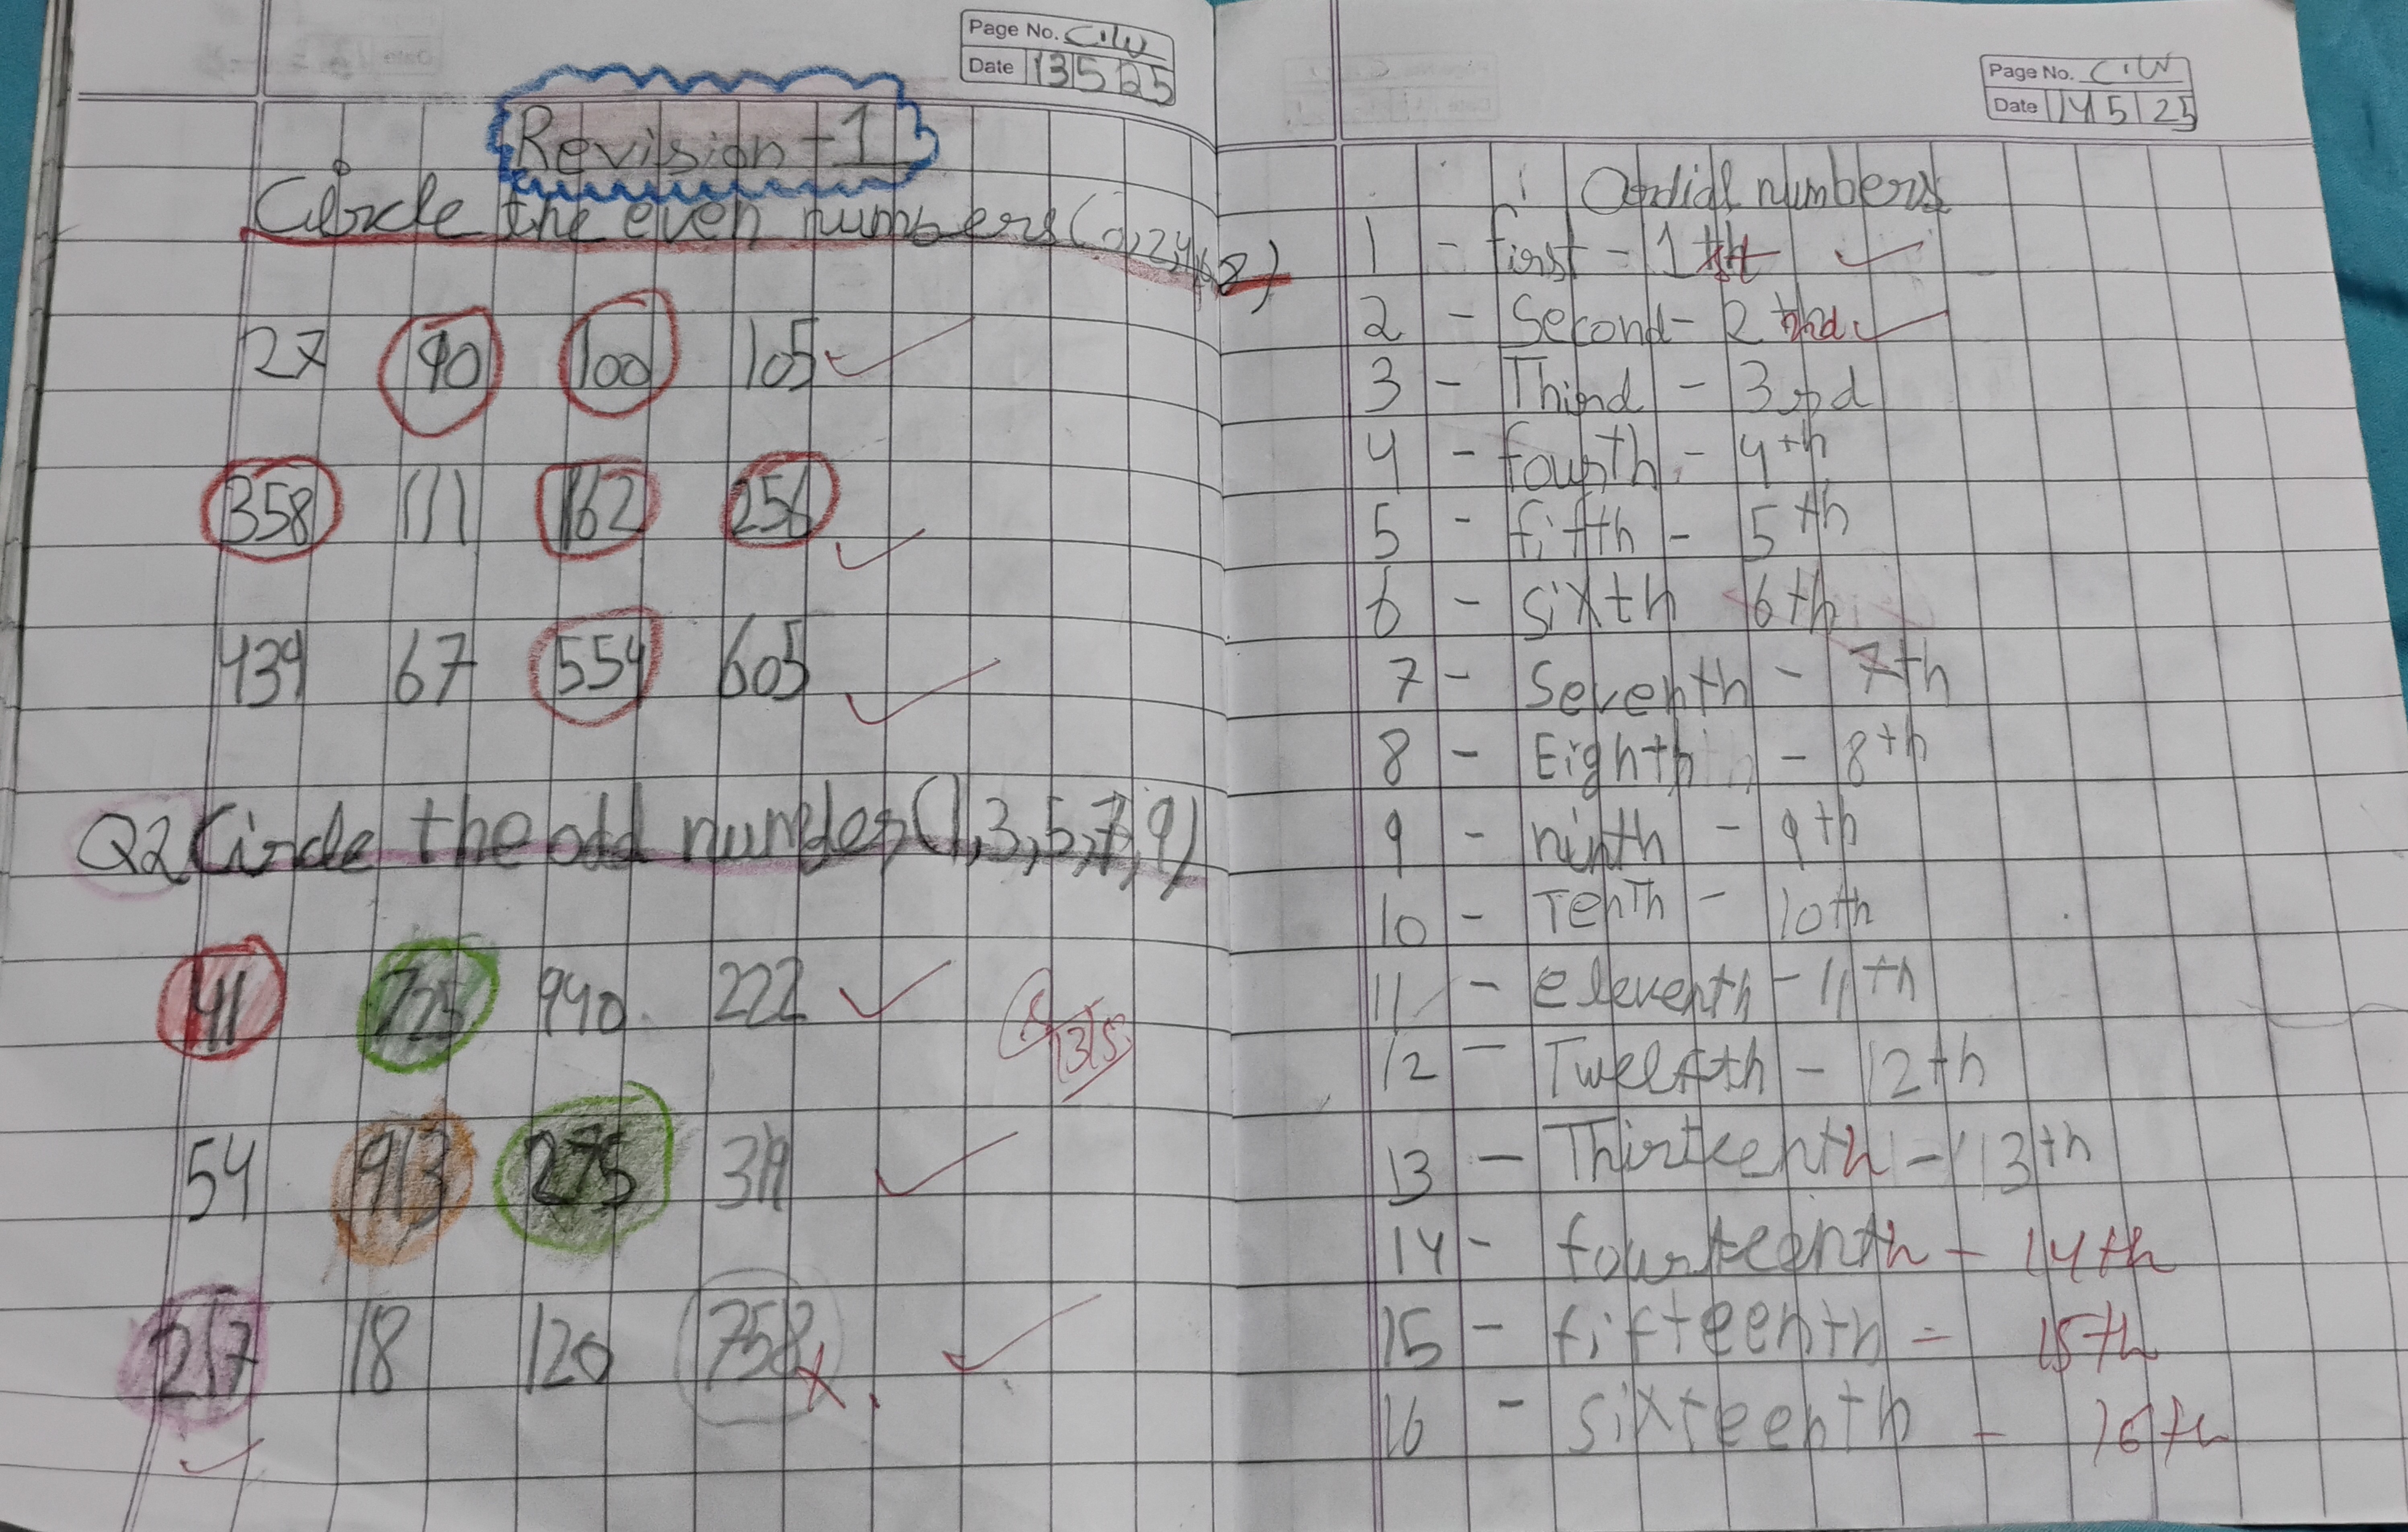 Page No. C.W
Date 13 5 25
Revision - 1
Circle the even numbers (0,2,4,6,8)
27 90 100 105
358 111 162 256
439 67 554 605
Q2 Circle the odd number (1,3,5,7,9)
41 725 940 222
54 913 275
217 18 120 758
Page No. C.W
Date 14 5 25
Ordial numbers
1 - first - 1st
2 - Second - 2nd
3 - Third - 3rd
4 - fourth - 4th
5 - fifth - 5th
6 - sixth 6th
7 - Seventh - 7th
8 - Eighth - 8th
9 - ninth - 9th
10 - Tenth - 10th
11 - eleventh - 11th
12 - Twelfth - 12th
13 - Thirteenth - 13th
14 - fourteenth - 14th
15 - fifteenth - 15th
16 - sixteenth - 16th